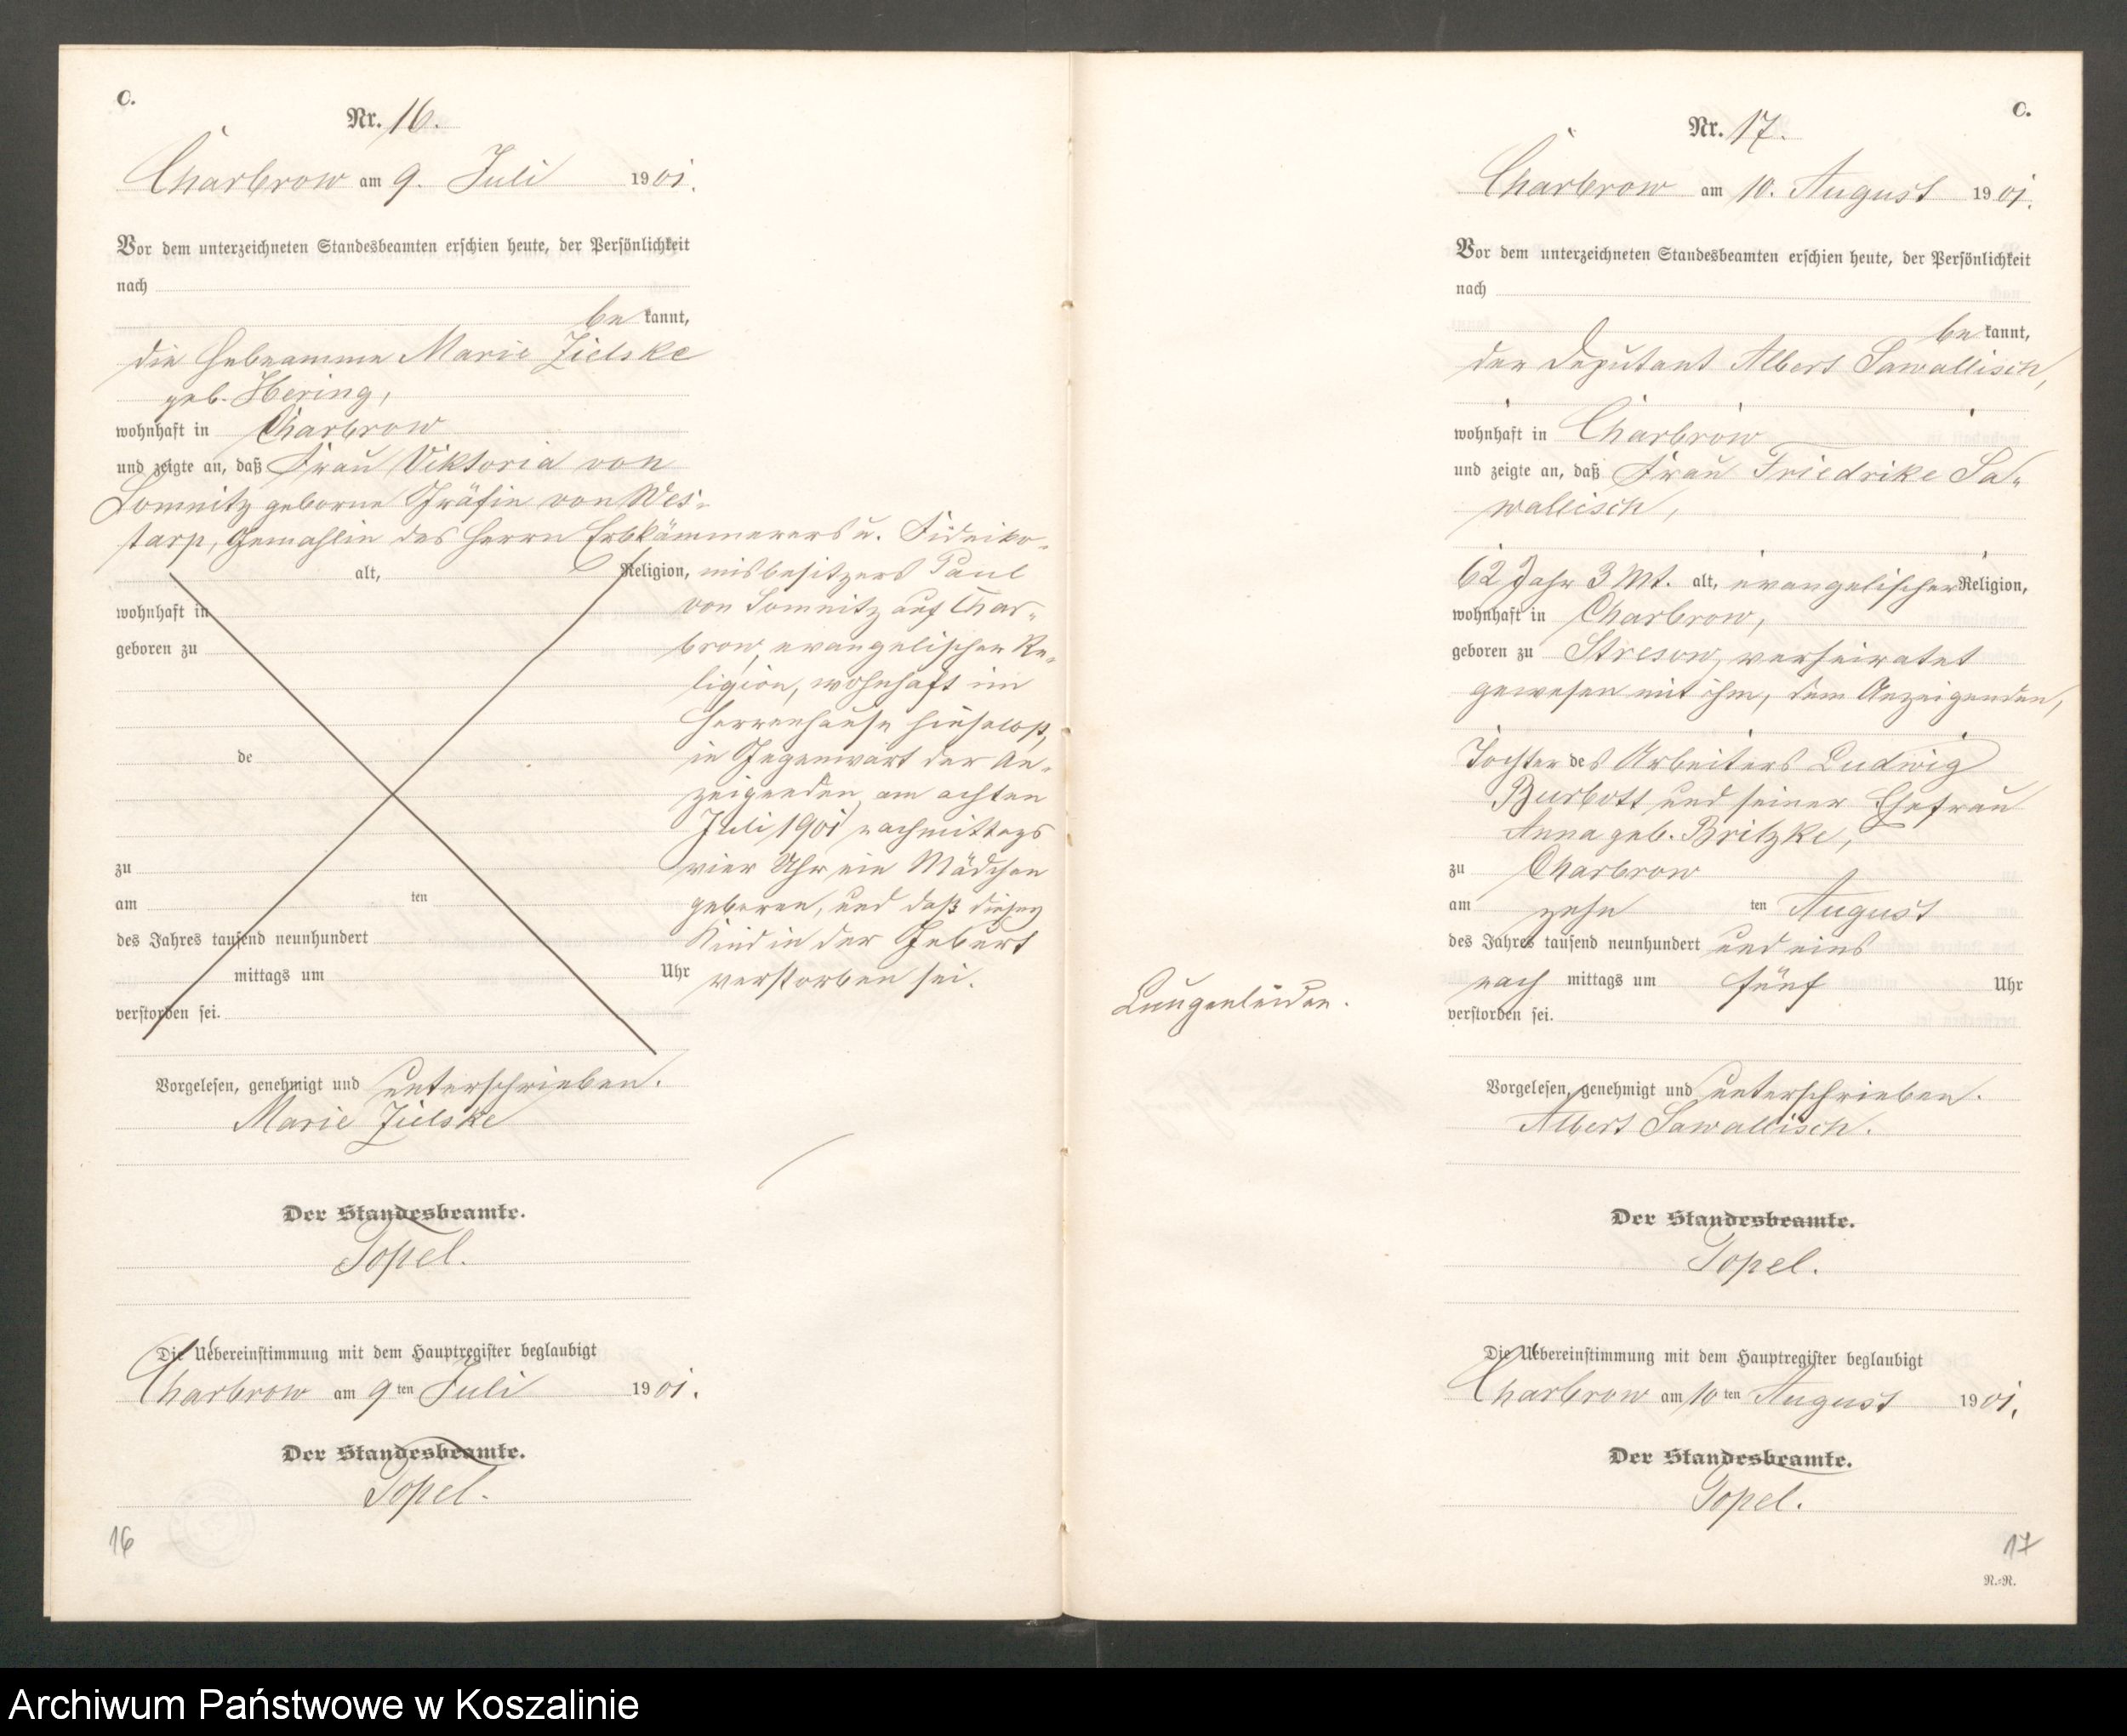 C.
Nr. 16.
Charbrow am 9. Juli 1901.
Vor dem unterzeichneten Standesbeamten erschien heute, der Persönlichkeit
nach
be kannt,
die Hebeamme Marie Zielske
geb. Hering,
wohnhaft in Charbrow
und zeigte an, daß Frau Viktoria von
Somnitz geborne Gräfin von Wes-
tarp, Gemahlin des Herrn Erbkämmerers u. Fideiko-
alt, Religion, misbesitzers Paul
wohnhaft in von Somnitz auf Char-
geboren zu brow, evangelischer Re-
ligion, wohnhaft im
Herrenhause hieselbst,
de in Gegenwart der An-
zeigenden am achten
Juli 1901 nachmittags
zu vier Uhr ein Mädchen
am ten geboren, und daß dieses
des Jahres tausend neunhundert Kind in der Geburt
mittags um Uhr verstorben sei.
verstorben sei.
Vorgelesen, genehmigt und unterschrieben.
Marie Zielske
Der Standesbeamte.
Topel.
Die Uebereinstimmung mit dem Hauptregister beglaubigt
Charbrow am 9ten Juli 1901.
Der Standesbeamte.
Topel.
16
C.
Nr. 17.
Charbrow am 10. August 1901.
Vor dem unterzeichneten Standesbeamten erschien heute, der Persönlichkeit
nach
be kannt,
der Deputant Albert Sawallisch,
wohnhaft in Charbrow
und zeigte an, daß Frau Friedrike Sa-
wallisch,
62 Jahr 3 Mt. alt, evangelischer Religion,
wohnhaft in Charbrow,
geboren zu Stresow, verheiratet
gewesen mit ihm, dem Anzeigenden,
Tochter des Arbeiters Ludwig
Burbott und seiner Ehefrau
Anna geb. Britzke,
zu Charbrow
am zehn ten August
des Jahres tausend neunhundert und eins
nach mittags um fünf Uhr
Lungenleiden.
verstorben sei.
Vorgelesen, genehmigt und unterschrieben.
Albert Sawallisch.
Der Standesbeamte.
Topel.
Die Uebereinstimmung mit dem Hauptregister beglaubigt
Charbrow am 10ten August 1901.
Der Standesbeamte.
Topel.
17
R.=R.
Archiwum Państwowe w Koszalinie